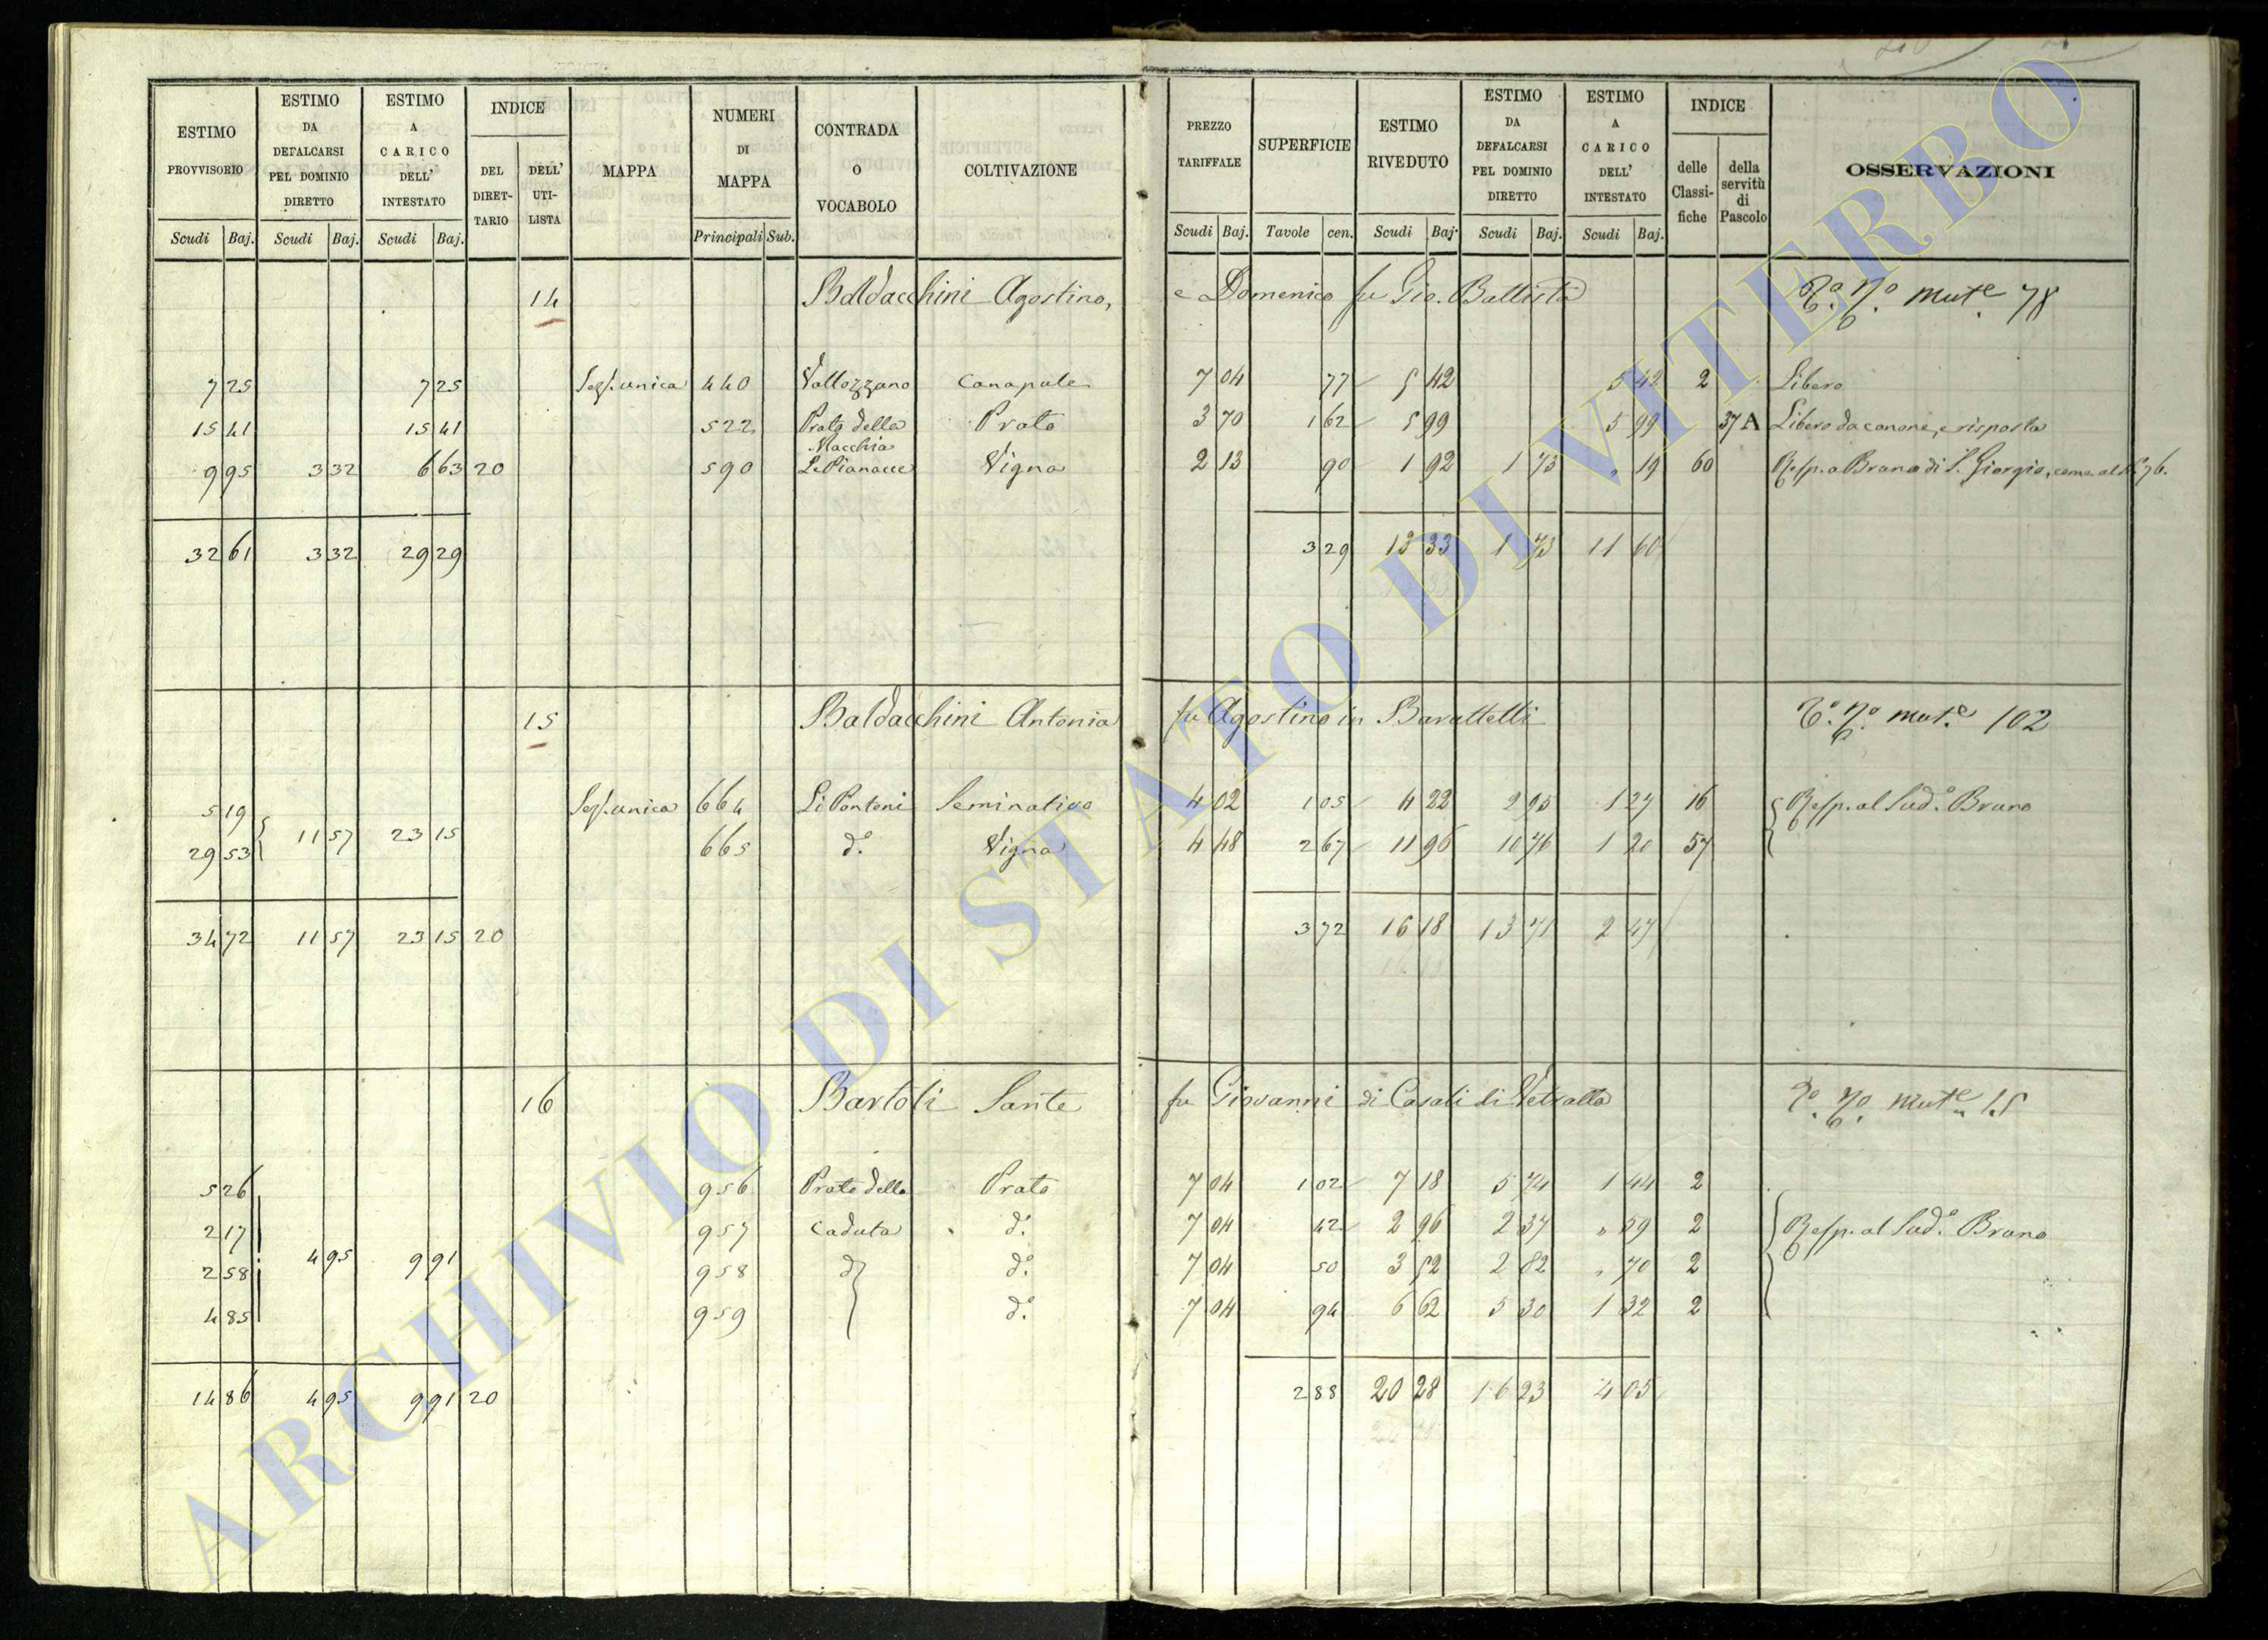 ESTIMO PROVVISORIO | ESTIMO DA DEFALCARSI PEL DOMINIO DIRETTO | ESTIMO A CARICO DELL' INTESTATO | INDICE DEL DIRETTARIO | DELL' UTILISTA | MAPPA | NUMERI DI MAPPA | CONTRADA O VOCABOLO | COLTIVAZIONE | PREZZO TARIFFALE | SUPERFICIE | ESTIMO RIVEDUTO | ESTIMO DA DEFALCARSI PEL DOMINIO DIRETTO | ESTIMO A CARICO DELL' INTESTATO | INDICE delle Classifiche | della servitù di Pascolo | OSSERVAZIONI
Scudi Baj. | Scudi Baj. | Scudi Baj. | Principali Sub. | Scudi Baj. | Tavole cen. | Scudi Baj. | Scudi Baj. | Scudi Baj.
14 Baldacchini Agostino, e Domenico fu Gio. Battista mut.e 78
7 25 | 7 25 | Sez. unica | 440 | Vallozzano | Canapule | 7 04 | 77 | 5 42 | 5 42 | 2 | Libero
15 41 | 15 41 | 522 | Prato della Macchia | Prato | 3 70 | 1 62 | 5 99 | 5 99 | 37 A | Libero da canone, e risposta
9 95 | 3 32 | 6 63 | 20 | 590 | Le Pianacce | Vigna | 2 13 | 90 | 1 92 | 1 73 | „ 19 | 60 | Resp. a Bruno di S. Giorgio, come al N. 76.
32 61 | 3 32 | 29 29 | 3 29 | 13 33 | 1 73 | 11 60
15 Baldacchini Antonia fu Agostino in Barattelli mut.e 102
5 19 | 11 57 | 23 15 | Sez. unica | 664 | Li Pontoni | Seminativo | 4 02 | 1 05 | 4 22 | 2 95 | 1 27 | 16 | Resp. al Sud.o Bruno
29 53 | 665 | d.o | Vigna | 4 48 | 2 67 | 11 96 | 10 76 | 1 20 | 57
34 72 | 11 57 | 23 15 | 20 | 3 72 | 16 18 | 13 71 | 2 47
16 Bartoli Sante fu Giovanni di Casali di Vetralla mut.e 15
5 26 | 956 | Prato della | Prato | 7 04 | 1 02 | 7 18 | 5 74 | 1 44 | 2
2 17 | 957 | Caduta | d.o | 7 04 | 42 | 2 96 | 2 37 | „ 59 | 2 | Resp. al Sud.o Bruno
2 58 | 4 95 | 9 91 | 958 | d.o | d.o | 7 04 | 50 | 3 52 | 2 82 | „ 70 | 2
4 85 | 959 | d.o | 7 04 | 94 | 6 62 | 5 30 | 1 32 | 2
14 86 | 4 95 | 9 91 | 20 | 2 88 | 20 28 | 16 23 | 4 05
ARCHIVIO DI STATO DI VITERBO